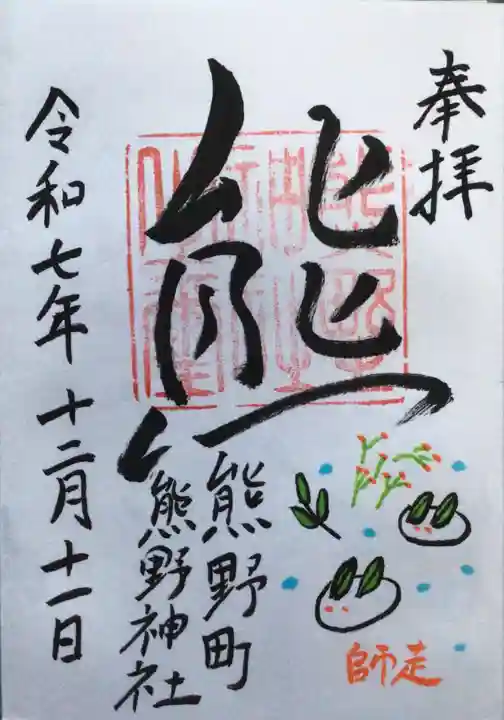 奉拝
熊
熊野町
熊野神社
令和七年十二月十一日
師走